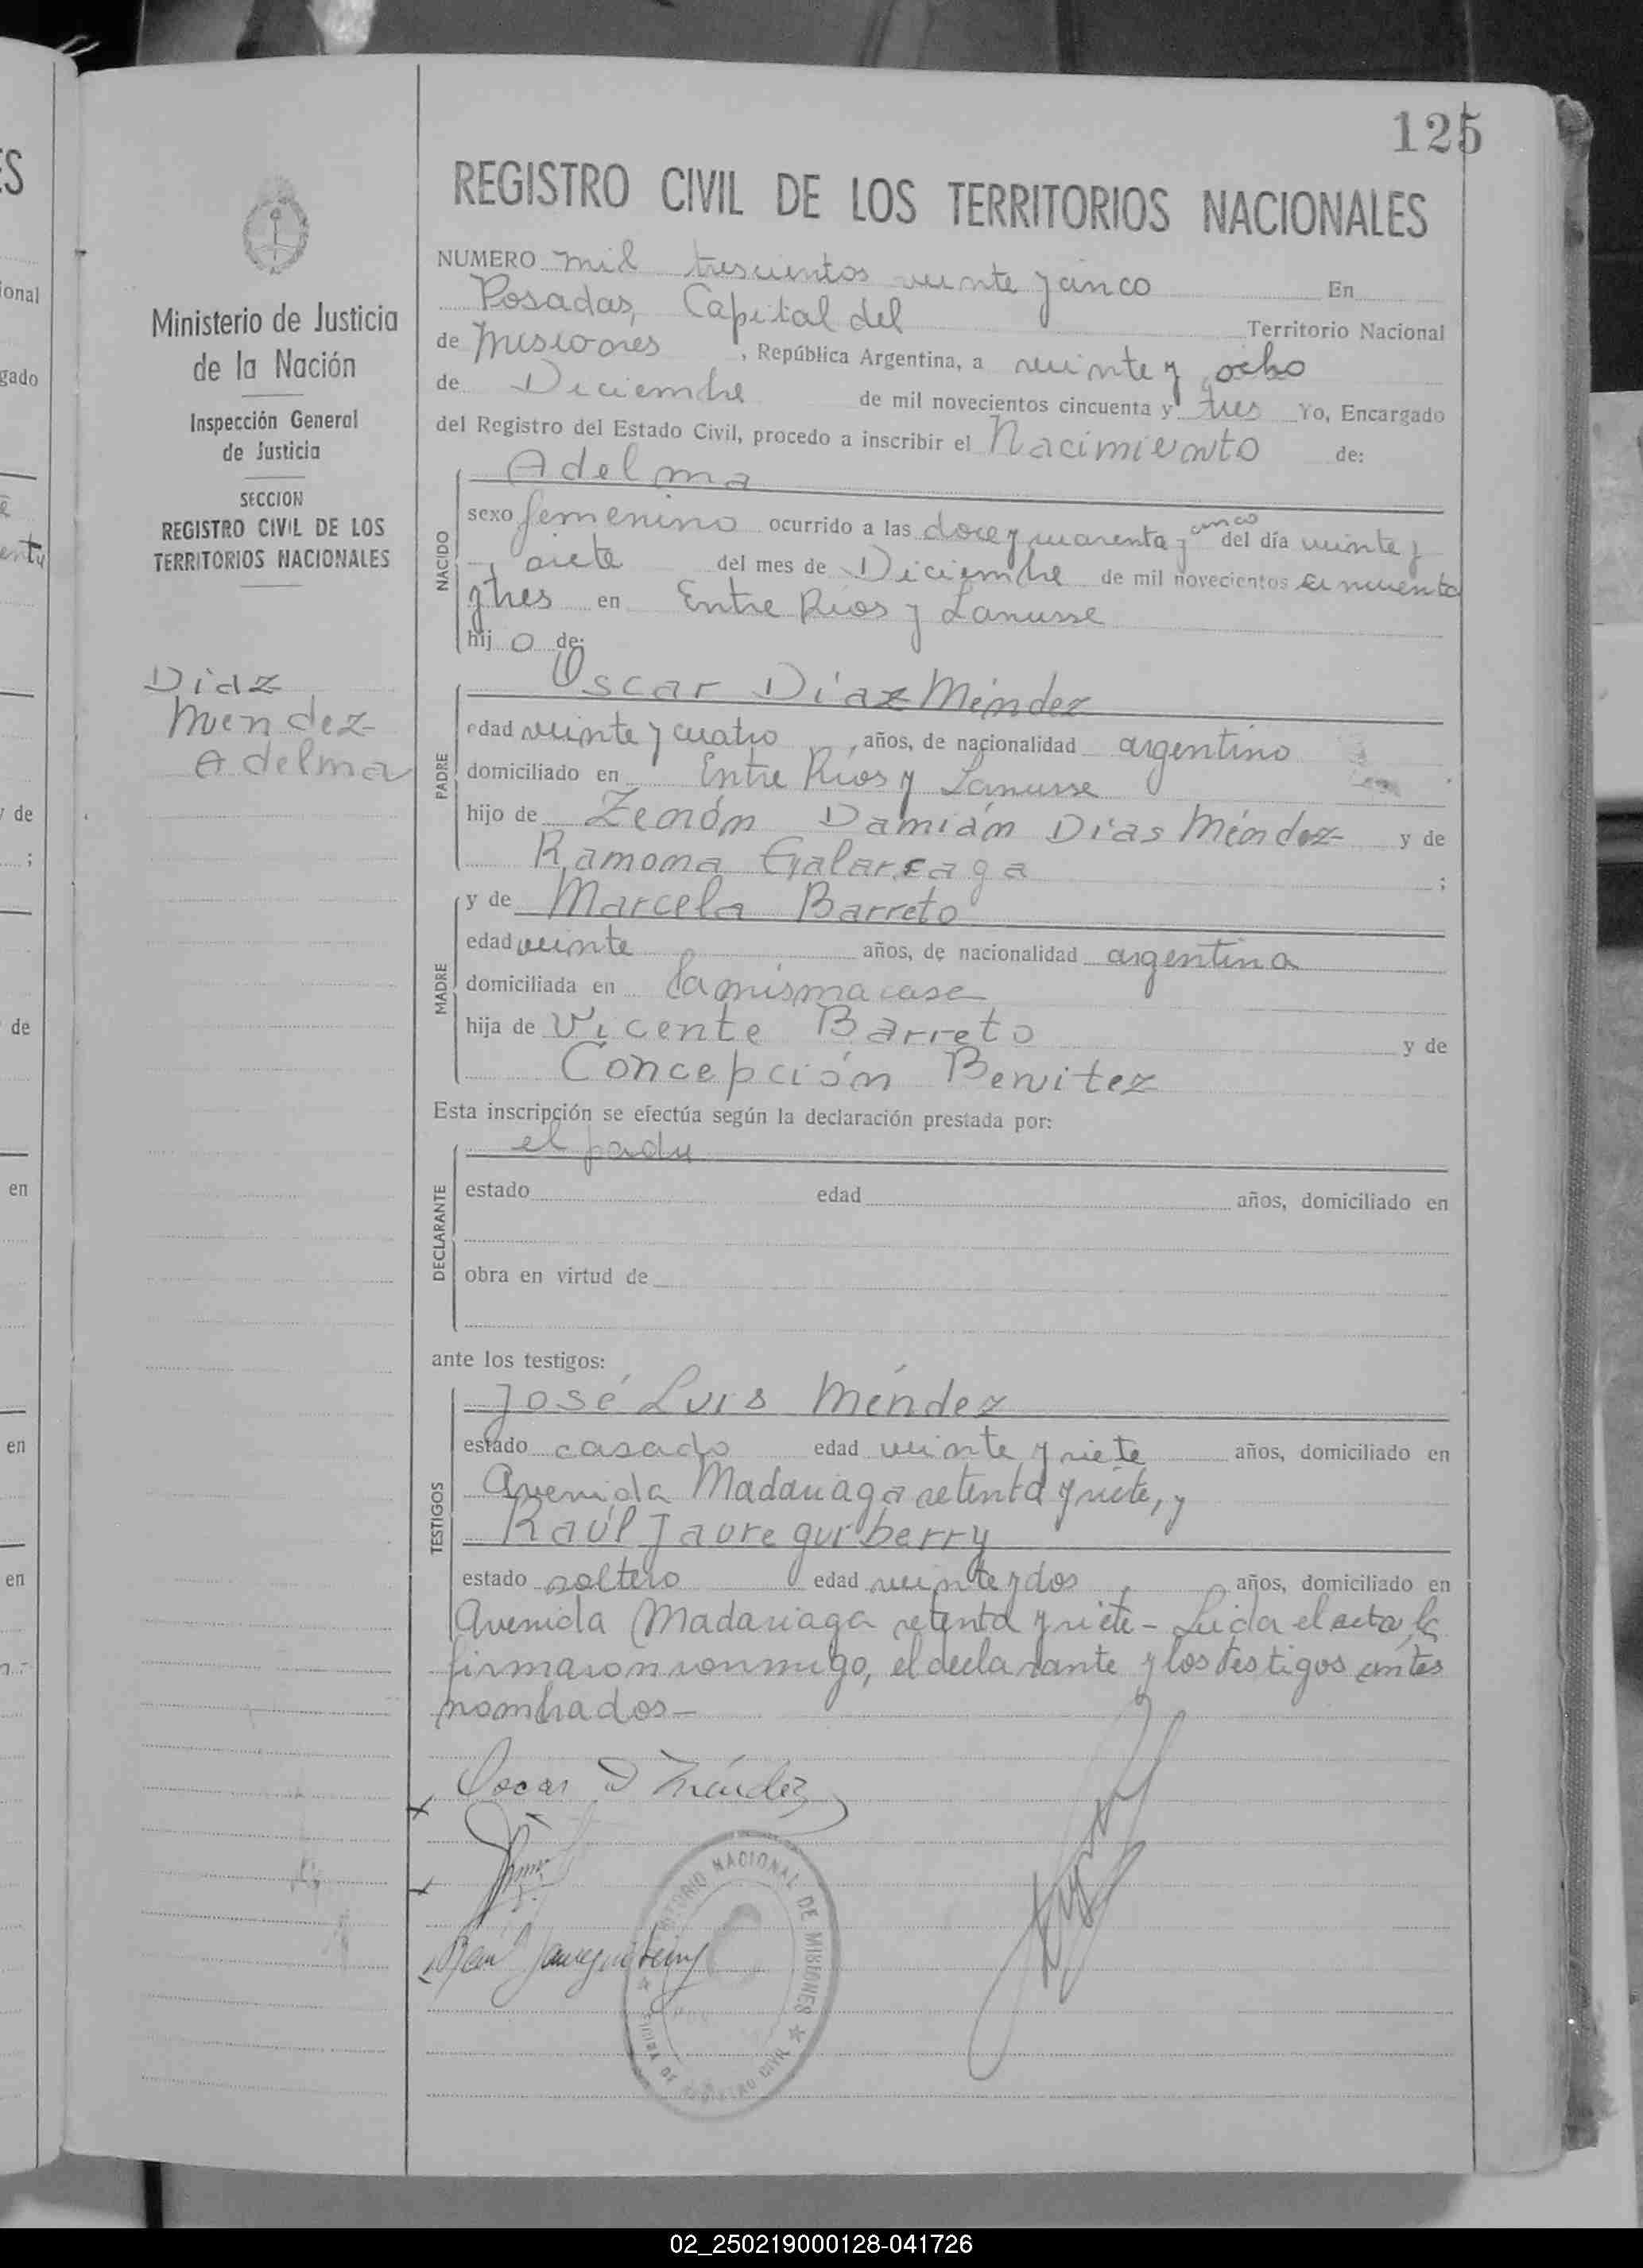 125
REGISTRO CIVIL DE LOS TERRITORIOS NACIONALES
Ministerio de Justicia
de la Nación
Inspección General
de Justicia
SECCION
REGISTRO CIVIL DE LOS
TERRITORIOS NACIONALES
Diaz
Mendez
Adelma
NUMERO mil trescientos veinte y cinco En
Posadas, Capital del Territorio Nacional
de Misiones, República Argentina, a veinte y ocho
de Diciembre de mil novecientos cincuenta y tres Yo, Encargado
del Registro del Estado Civil, procedo a inscribir el Nacimiento de:
NACIDO
Adelma
sexo femenino ocurrido a las doce y cuarenta y cinco del día veinte y
siete del mes de Diciembre de mil novecientos cincuenta
y tres en Entre Ríos y Lanusse
hij o de:
PADRE
Oscar Díaz Méndez
edad veinte y cuatro, años, de nacionalidad argentino
domiciliado en Entre Ríos y Lanusse
hijo de Zenón Damián Dias Méndez y de
Ramona Galarzaga ;
MADRE
y de Marcela Barreto
edad veinte años, de nacionalidad argentina
domiciliada en la misma casa
hija de Vicente Barreto y de
Concepción Benitez
Esta inscripción se efectúa según la declaración prestada por:
DECLARANTE
el padre
estado edad años, domiciliado en
obra en virtud de
ante los testigos:
TESTIGOS
José Luis Méndez
estado casado edad veinte y siete años, domiciliado en
Avenida Madariaga setenta y siete, y
Raúl Jaureguiberry
estado soltero edad veinte y dos años, domiciliado en
Avenida Madariaga setenta y siete - Leida el acta, la
firmaron conmigo, el declarante y los testigos antes
nombrados -
Oscar D Méndez
Raul Jaureguiberry
TERRITORIO NACIONAL DE MISIONES
REGISTRO CIVIL
02_250219000128-041726